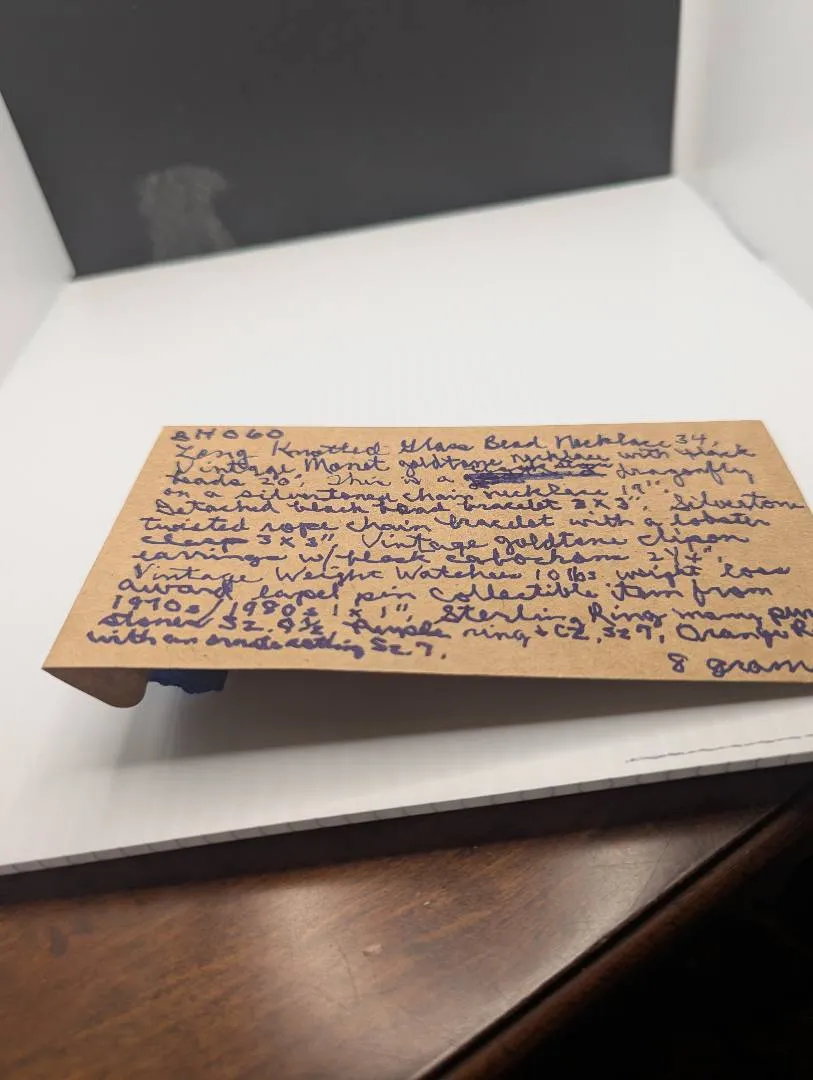 BH060
Long Knotted Glass Bead Necklace 34,
Vintage Monet goldtone necklace with black
beads 20", This is a dragonfly
on a silvertoned chain necklace 19".
Detached black bead bracelet 3 x 3". Silvertone
twisted rope chain bracelet with a lobster
clasp 3 x 3" Vintage goldtone clipon
earrings w/black cabochons
Vintage Weight Watchers 10 lbs weight loss
award lapel pin collectible item from
1970s/1980s 1 x 1", Sterling Ring many
stones Sz 9½ Purple ring + CZ, Sz 7, Orange
with an ornate setting Sz 7.
8 gram